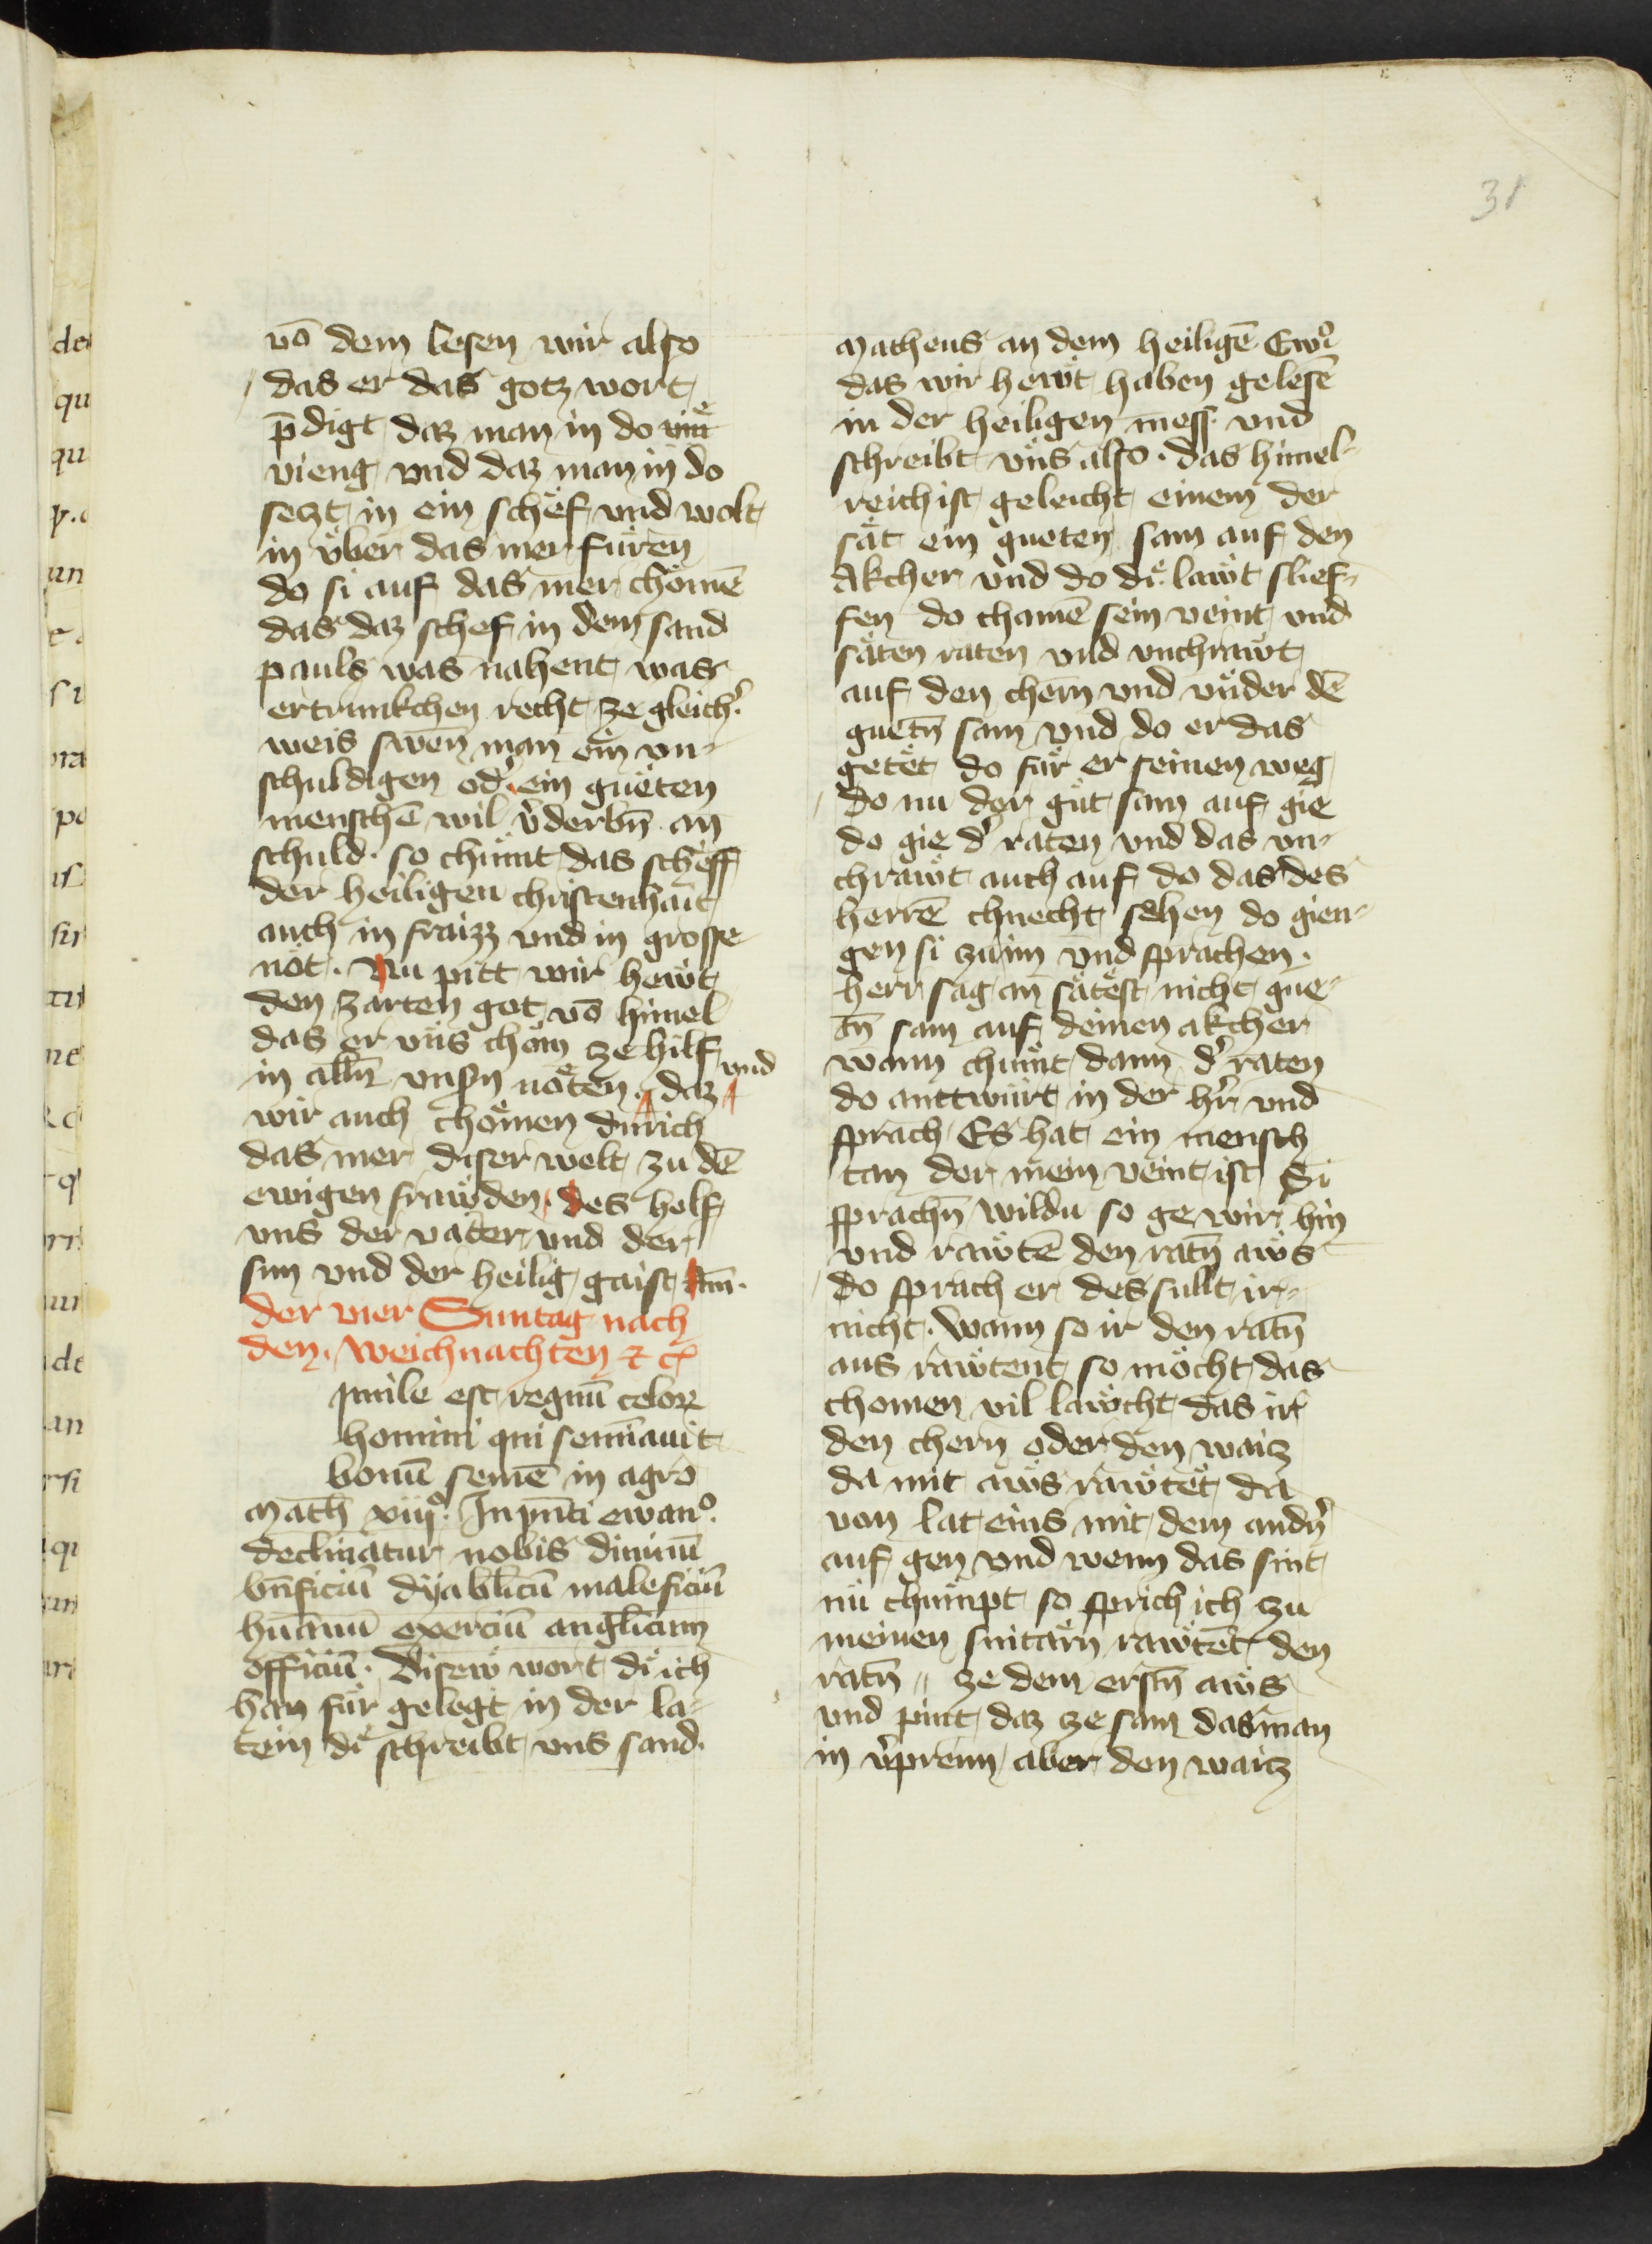 31
vō dem lesen wir also
das er das gotz wort
p̄digt daz man in do
vieng vnd daz man in do
seczt in ein schef vnd wolt
in vͤber das mer fuͤren
do si auf das mer choͤmē
das daz schef in dem sand
pauls was nahent was
ertrunkchen recht ze gleich᾽
weis swen man ein vn-
schuldigen od᾽ ein guͤten
menschē wil v᾽derbn̄ an
schuld. so chuͤmt das scheff
der heiligen christenhait
auch in fraizz vnd in grosse
not. Nu pitt wir hewͤt
den zarten got vō himel
das er vns choͤm ze hilf
in alln̄ vnsn̄ noͤten. vnd daz
wir auch choͤmen durich
das mer diser welt zu dē
ewigen frawͤden. des helf
vns der vater vnd der
sun vnd der heilig gaist Am̄.
der vier Suntag nach
den. weichnachten ⁊ c̄
Simile est regnū celoꝝ
homini qui semīauit
bonū semē in agro
Math xiijͦ. In pn̄ti ewanͦ.
declinatur nobis diuinū
bn̄ficiū dyablicū maleficiū
hūanū exerciū anglicum
officiū. Disew wort di ich
han fuͤr gelegt in der la-
tein di schreibt vns sand.
Matheus an dem heiligē Ewͦ
das wir hewͤt haben gelesē
in der heiligen mess vnd
schreibt vns also. das himel-
reich ist geleicht einem der
saͤt ein gueten sam auf den
Akcher vnd do di lawͤt slief-
fen do chamē sein veint vnd
saͤten raten vnd vnchrawͤt
auf den chern vnd vnder dē
guetn̄ sam vnd do er das
getet do fuͤr er seinen weg
do nu der guͤt sam auf gie
do gie d᾽ raten vnd das vn-
chrawͤt auch auf do das des
herrē chnecht sehen do gien-
gen si zu im vnd sprachen.
herr sag an saͤtest nicht gue-
tn̄ sam auf deinen akcher
wann chuͤmt dann d᾽ raten
do anttwurt in der hr̄ vnd
sprach Es hat ein mensch
tan der mein veint ist Si
sprachn̄ wildu so ge wir hin
vnd rawͤtē den ratn̄ awͤs
do sprach er des sullt ir
nicht. wann so ir den ratn̄
aus rawͤtent so moͤcht das
chomen vil lawͤcht das ir
den chern oder den waitz
da mit awͤs rawͤtet da
von lat eins mit dem andn̄
auf gen vnd wenn das snit
nu chuͤmpt so sprich ich zu
meinen snitaͤrn rawͤtet den
ratn̄ ze dem erstn̄ awͤs
vnd pint daz ze sam das man
in v᾽prenn aber den waitz